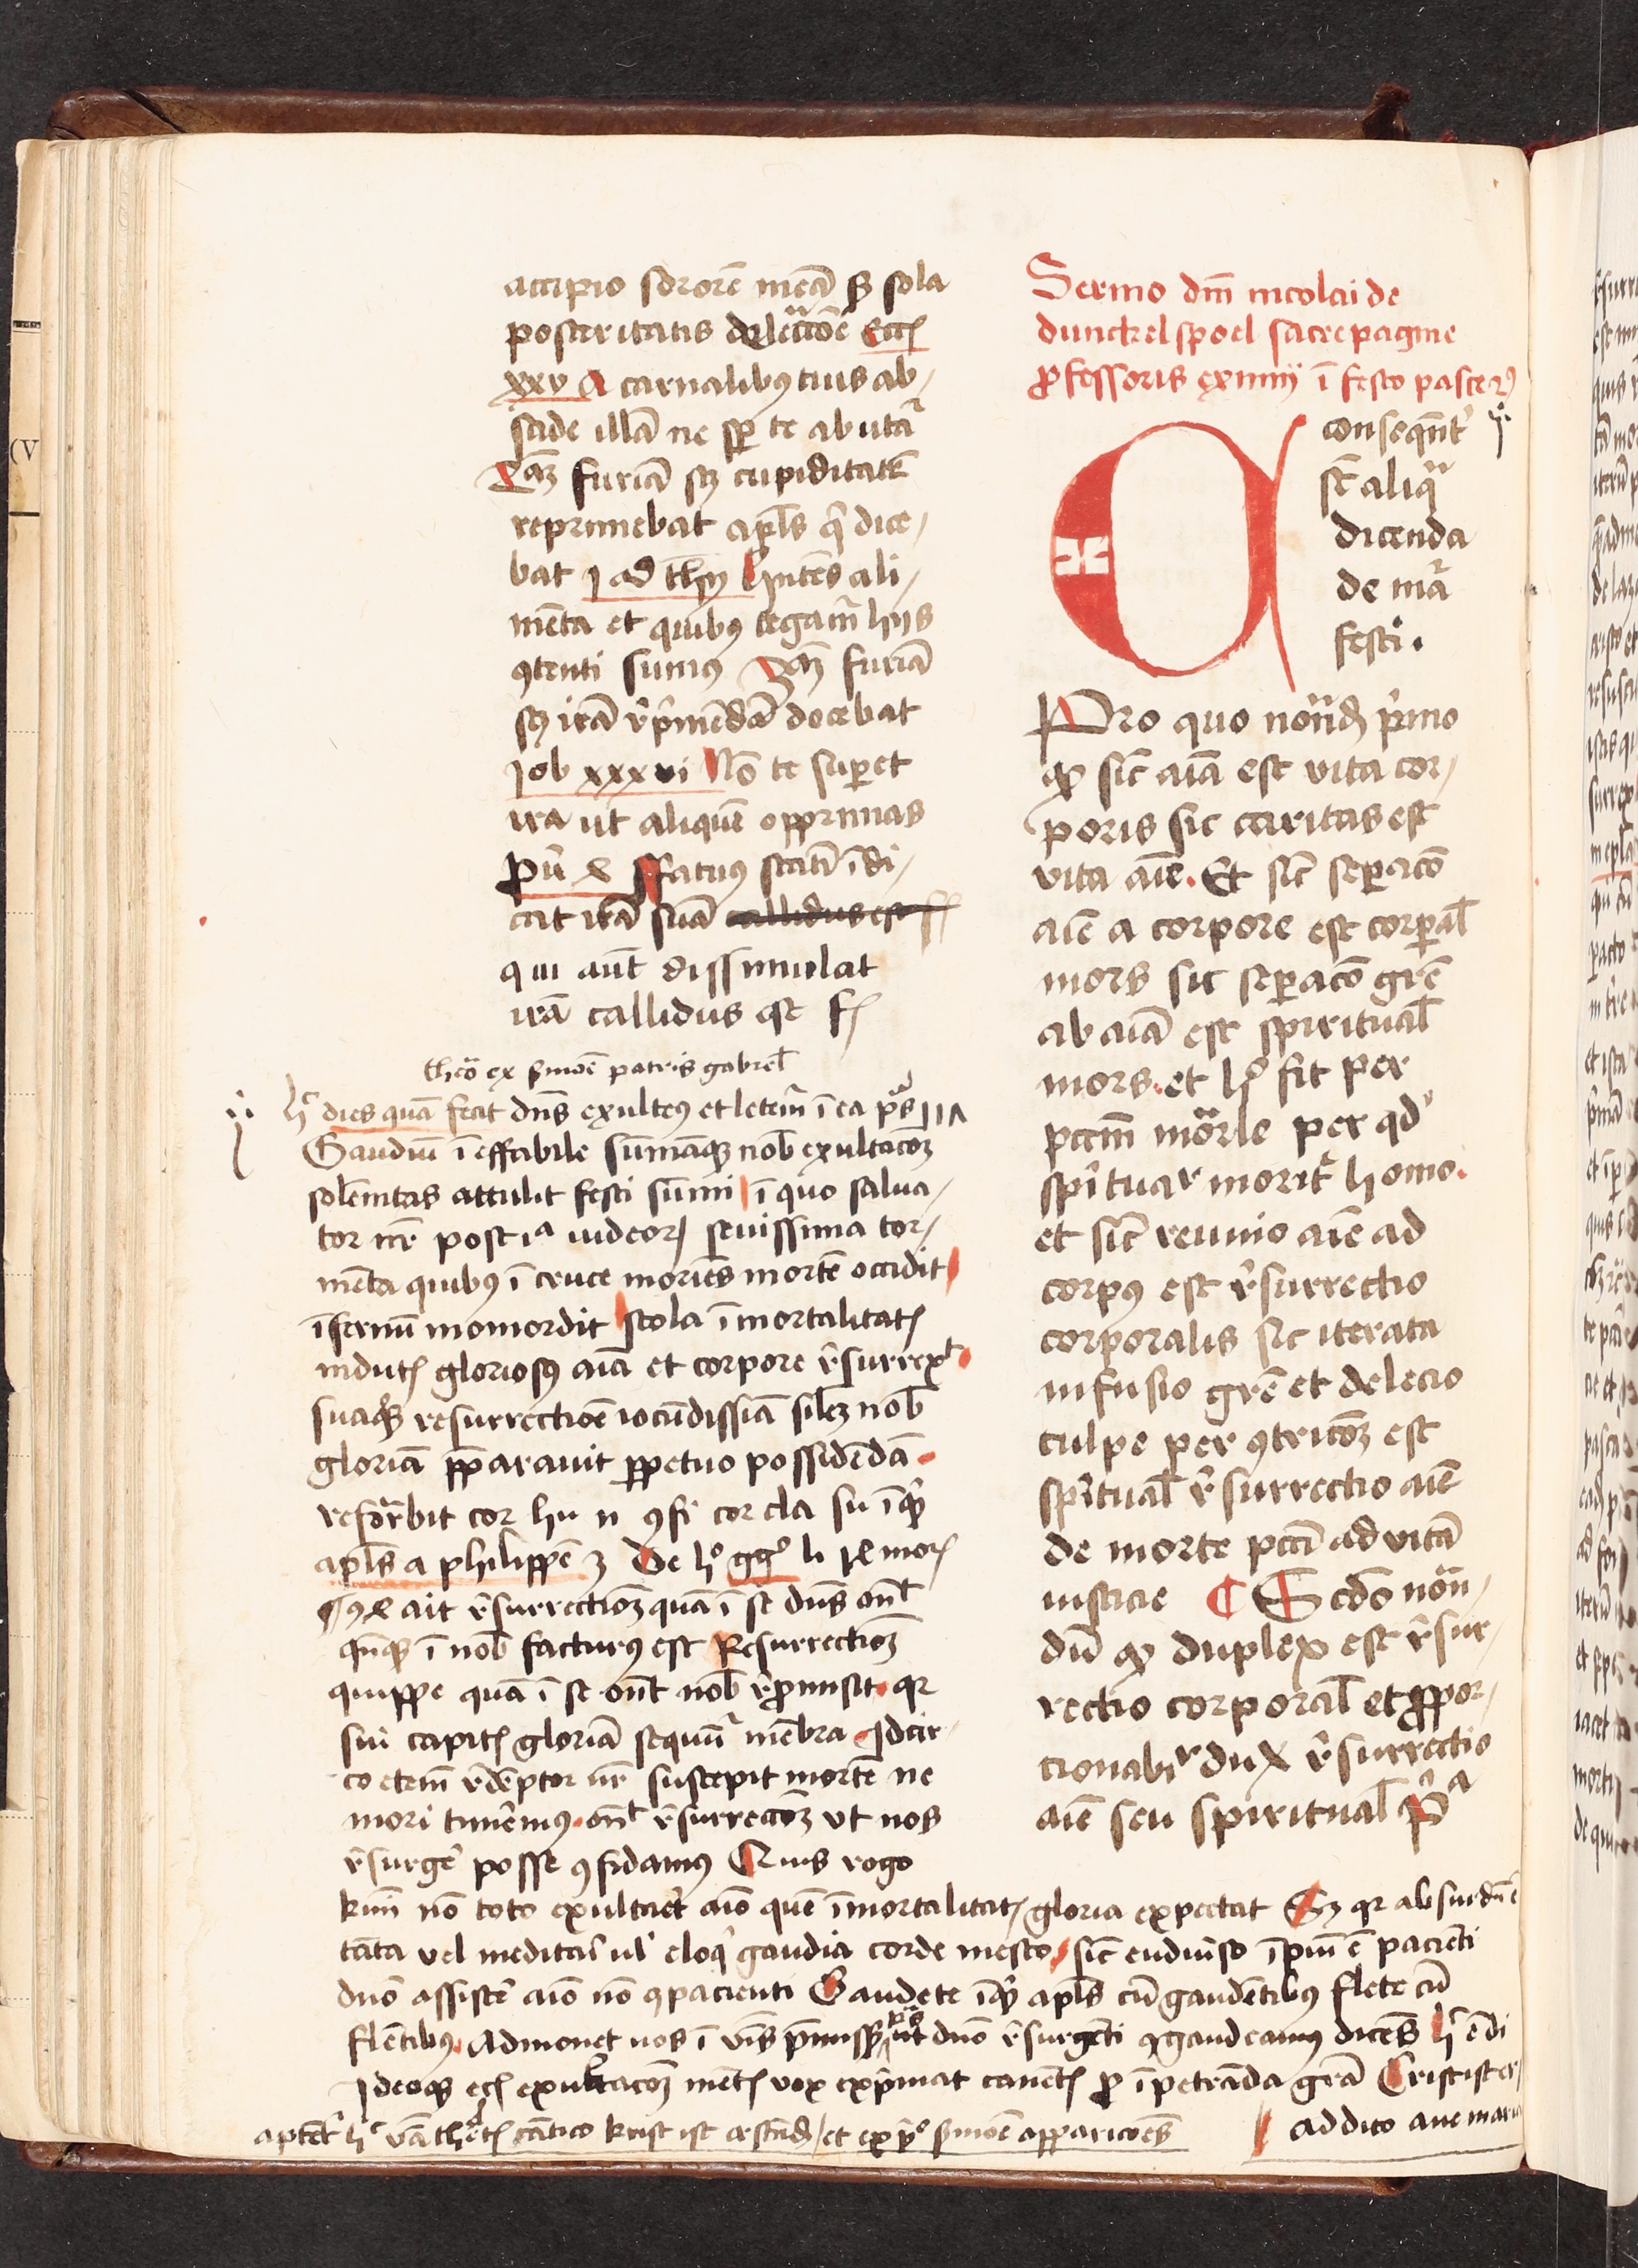 accipio sororē meā sȝ sola
posteritatis dilectiōe Eccͥ
xxv A carnalibꝰ tuis ab/
scide illā ne ꝑ te abutat᷑
furiā scꝫ cupiditatē
reprimebat apl̄s q̇ dice/
bat j ad thy Hn̄tes ali/
mēta et quibꝰ tegam᷑ hijs
ꝯtenti sumꝰ furiā
scꝫ irā rep̄mēdā docebat
Job xxxvi Nō te superet
ira ut aliquē opprimas
ꝓū x ffatuꝰ statī īdi/
cat irā suā callidus est
qui aūt dissimulat
irā callidus est
theā ex s̄mōe patris gabriel̄
ij hͨ dies quā fecit dn̄s exultemꝰ et letem᷑ ī ea ps̄
Gaudiū īeffabile sūmāqꝫ nob̄ exultacōꝫ
solēnitas attulit festi sūmi ī quo salua/
tor nr̄ post iudeoꝝ seuissima tor/
mēta quibꝰ ī cruce moriēs mortē occidit
īfernū momordit stola īmortalitatꝭ
indutꝰ gloriosꝰ aīa et corpore resurrexͭ
suaqꝫ resurrectiōe iocūdissiā sil̄ꝫ nob̄
gloriā p̄parauit ꝑpetuo possidēdā
reforͣbit cor hu n ꝯfi cor cla su īqͭ
apl̄s a philippē 3 De h° gg° li mor̄
ait resurrectionꝫ quā ī se dn̄s on̄t
q̄nqꝫ ī nob̄ facturꝰ est Resurrectionꝫ
quippe quā ī se on̄t nob̄ rep̱misit qꝛ
sui capitꝭ gloriā sequūt᷑ mēbra Idcir
co etem̄ redēptor nr̄ suscepit mortē ne
mori timemꝰ on̄t resurreccōꝫ vt nos
resurge᷑ posse ꝯfidamꝰ Quis rogo
kmī nō toto exultaret aīo quē īmortalitatꝭ gloria expectat Sꝫ qꝛ absurdū ē
tāta vel meditari ul᷑ eloqͥ gaudia corde mesto sicͭ eudiuiso īpiū ē pacienti
dn̄o assiste᷑ aīo nō ꝯpacienti Gaudete īqͭ apl̄s cū gaudētibꝰ flete cū
flētibꝰ Admonet nos ī v̄is p̄missꝭ ps̄ ut dn̄o resurgēti ꝯgaudeamꝰ dicēs hͨ ē di
Ideoqꝫ eccͥ exultacōꝫ mētꝭ vox exp̄mat canētꝭ ꝓ īpetrāda grā Crist ist er
cātico krist ist et ex s̄mōe apparicōēs
addito aue maria
Sermo dn̄i nicolai de
dunckelspoel sacre pagine
ꝓfessoris eximij ī festo pasceꝝ
Consequēt᷑
st̄ aliqͣ
dicenda
de mā
festi.
Pro quo notādū p̄mo
ꝙ sicͭ aīa est vita cor/
poris sic caritas est
vita aīe. Et sicͭ seꝑacō
aīe a corpore est corꝑal̄
mors sic seꝑacō grē
ab aīa est spiritual̄
mors. et h° fit per
pctm̄ mōrle per qd
spīritualr morit᷑ homo.
et sicͭ reunio aīe ad
corpꝰ est resurrectio
corporalis sic iterata
infusio grē et delecio
culpe per ꝯtricōꝫ est
spīritual̄ resurrectio aīe
de morte pctī ad vitā
iusticie ¶ Scd̄o notā/
dū ꝙ duplex est resur/
rectio corporal̄ et ꝓpor/
cionabl̄r duplex resurrectio
aīe seu spiritual̄ P̄ͣ